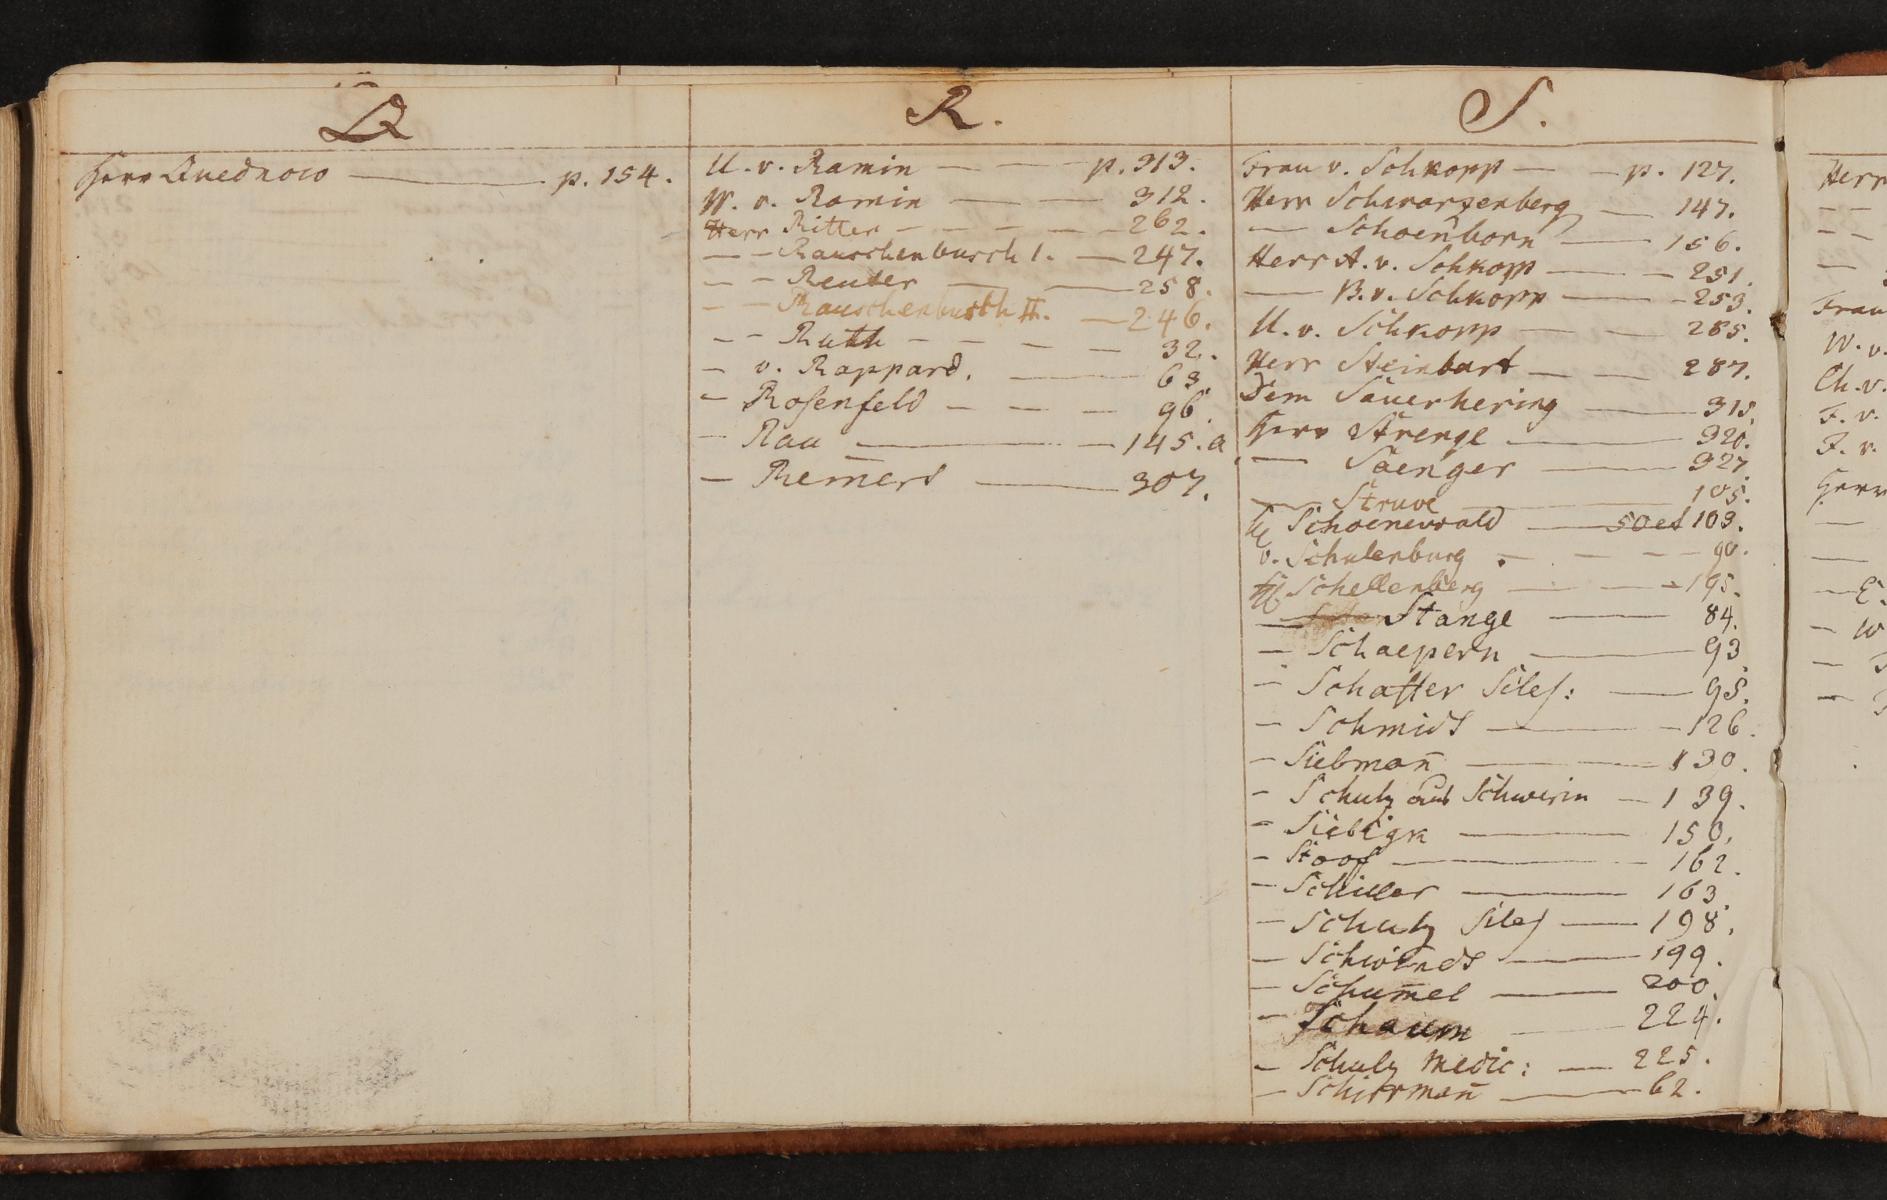 Q
Herr Quednow — p. 154.
R.
U. v. Ramin — — p. 313.
W. v. Ramin — — 312.
Herr Ritter — — — — 262.
— — Rauschenbusch I. — 247.
— — Reuter — — 258.
— — Rauschenbusch II. — 246.
— — Ruth — — — — 32.
— v. Rappard. — 63.
— Rosenfeld — — — 96.
— Rau — — 145. a
— Rem̅ers — 307.
S.
Frau v. Schkopp — — p. 127.
Herr Schwarzenberg — 147.
— Schoenborn — 156.
Herr A. v. Schkopp — — 251.
— B. v. Schkopp — — 253.
U. v. Schkopp — — 285.
Herr Steinbart — — 287.
Dem Sauerhering — 315.
Herr Strenge — 320.
— Saenger — 327.
— Struve — 105.
Schoenewald — 50 et 103.
v. Schulenburg — — — — 90.
Schellenberg — — — 195.
— Stange — 84.
— Schaepern — 93.
— Schaffer Siles: — 95.
— Schmidt — — 126.
— Siebman̅ — — 130.
— Schulz aus Schwerin — 139.
— Siebigk — 150.
— Stoof — 162.
— Schiller — 163.
— Schulz Siles — 198.
— Schwindt — 199.
— Schum̅el — 200.
— Schaum — 224.
— Schulz Medic: — 225.
— Schirrman̅ — 62.
Herr
— —
— —
—
Frau
W. v.
Ch. v.
F. v.
F. v.
Herr
—
—
— E.
— W
—
—